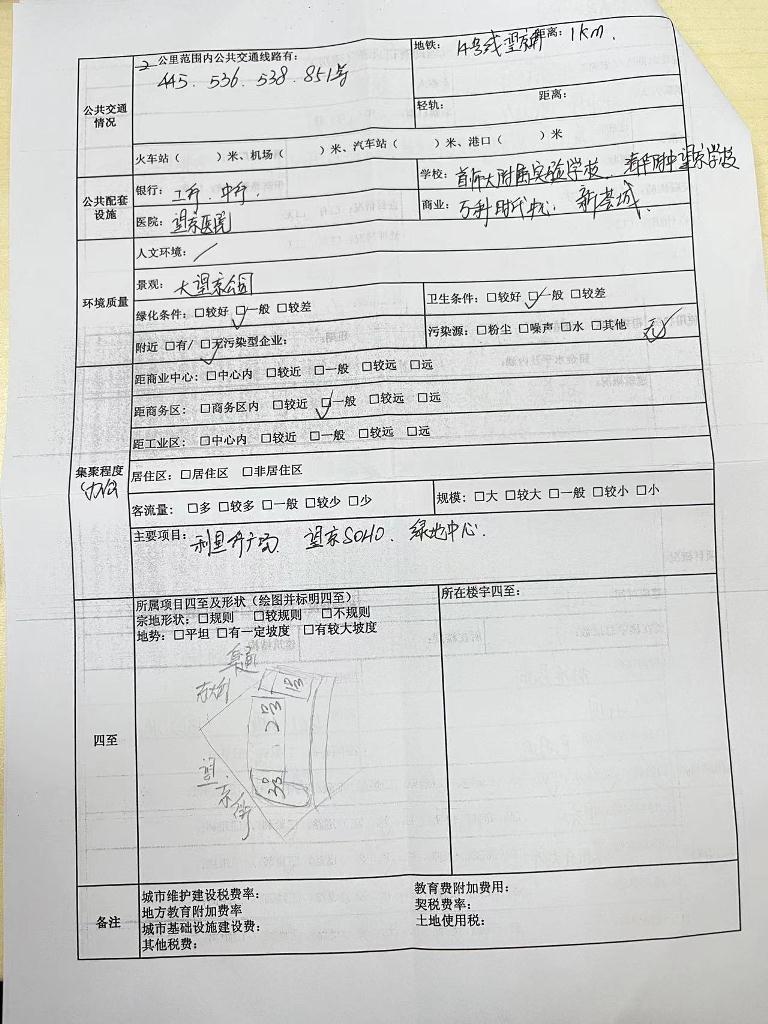 2 公里范围内公共交通线路有:
445. 536. 538. 851号
地铁: 14号线望京南 距离: 1km.
轻轨: 距离:
公共交通
情况
火车站( )米、机场( )米、汽车站( )米、港口( )米
公共配套
设施
银行: 工行. 中行.
学校: 首师大附属实验学校. 清华附中望京学校
医院: 望京医院
商业: 万科时代中心. 新荟城.
环境质量
人文环境: /
景观: 大望京公园
绿化条件: □较好 □一般 □较差
卫生条件: □较好 □一般 □较差
附近 □有/ □无污染型企业:
污染源: □粉尘 □噪声 □水 □其他 无
集聚程度
办公
距商业中心: □中心内 □较近 □一般 □较远 □远
距商务区: □商务区内 □较近 □一般 □较远 □远
距工业区: □中心内 □较近 □一般 □较远 □远
居住区: □居住区 □非居住区
客流量: □多 □较多 □一般 □较少 □少
规模: □大 □较大 □一般 □较小 □小
主要项目: 利星行广场. 望京SOHO. 绿地中心.
四至
所属项目四至及形状(绘图并标明四至)
宗地形状: □规则 □较规则 □不规则
地势: □平坦 □有一定坡度 □有较大坡度
所在楼宇四至:
望京街
备注
城市维护建设税费率:
教育费附加费用:
地方教育附加费率
契税费率:
城市基础设施建设费:
土地使用税:
其他税费: